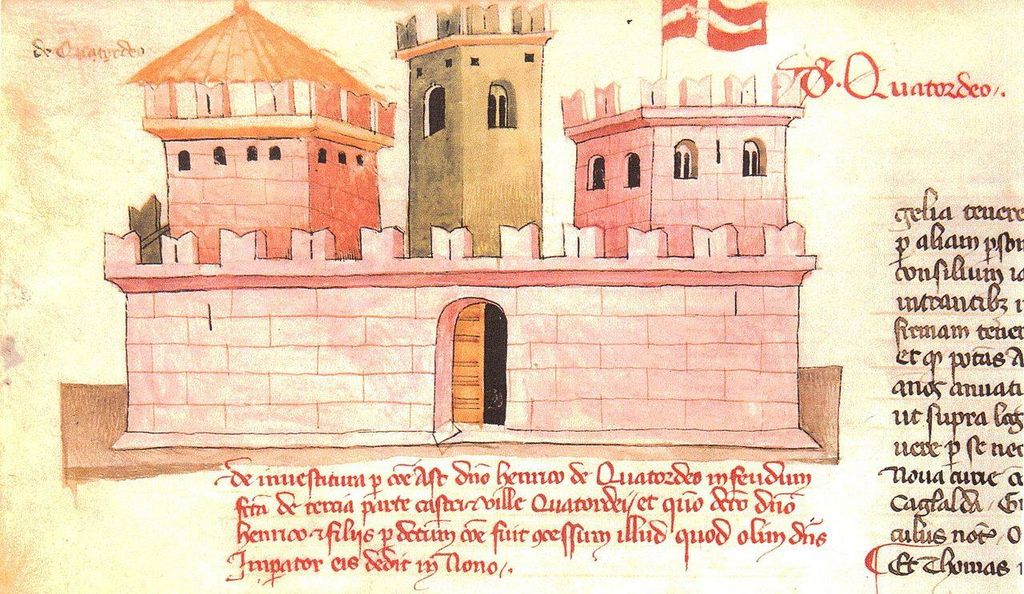 de Quatordeo
S. Quatordeo.
de inuestitura p cōe Ast dño henrico de Quatordeo in feudum
fcta de tercia parte castri & ville Quatordei, et quō dcto dño
henrico & filijs p dictum cōe fuit ꝯcessum illud quod olim dñs
Imperator eis dedit in Nono.
gelia tenere
p aliam pson
consilium
intrantibȝ
firmam tener
et qɫ potās A
anos annuati
ut supra leg
uere p se nec
Noua curie
Caglalda. G
culus not. O
Et Thomas